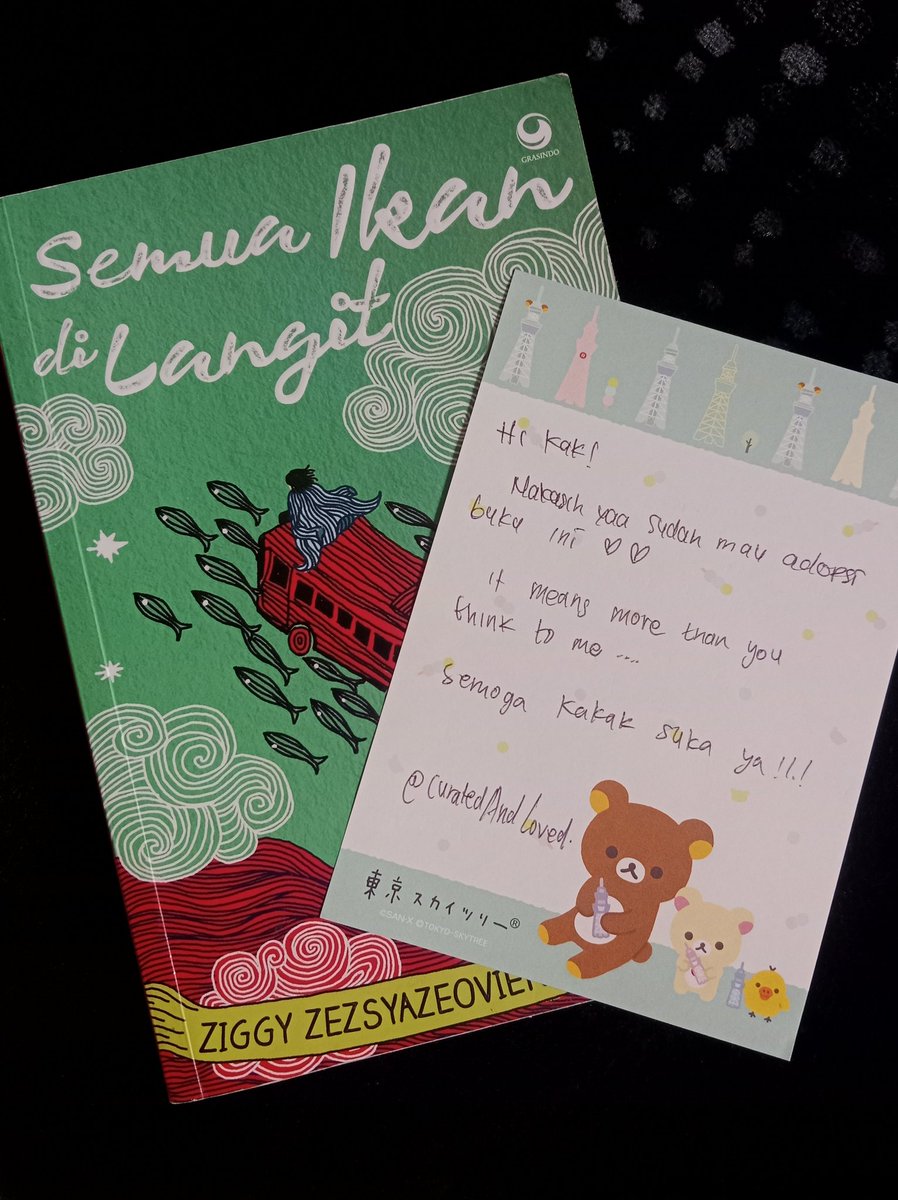 GRASINDO
Semua Ikan
di Langit
ZIGGY ZEZSYAZEOVIEN
Hi kak!
Makasih yaa sudah mau adopsi
buku ini ♡♡
it means more than you
think to me ....
Semoga kakak suka ya!!.!
@CuratedAndLoved.
東京スカイツリー®
©SAN-X ©TOKYO-SKYTREE